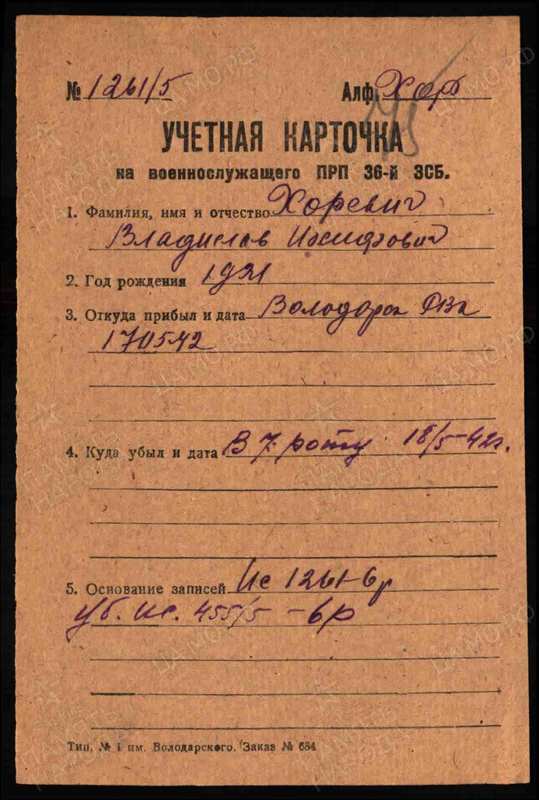 № 1261/5 Алф. Хор
УЧЕТНАЯ КАРТОЧКА
на военнослужащего ПРП 36-й ЗСБ.
1. Фамилия, имя и отчество Хоревич
Владислав Иосифович
2. Год рождения 1921
3. Откуда прибыл и дата Володарск РВк
170542
4. Куда убыл и дата В 7 роту 18/5-42г.
5. Основание записей Ис 1261-6р
Уб. ис. 455/5 -6р
Тип. № 1 им. Володарского. Заказ № 684